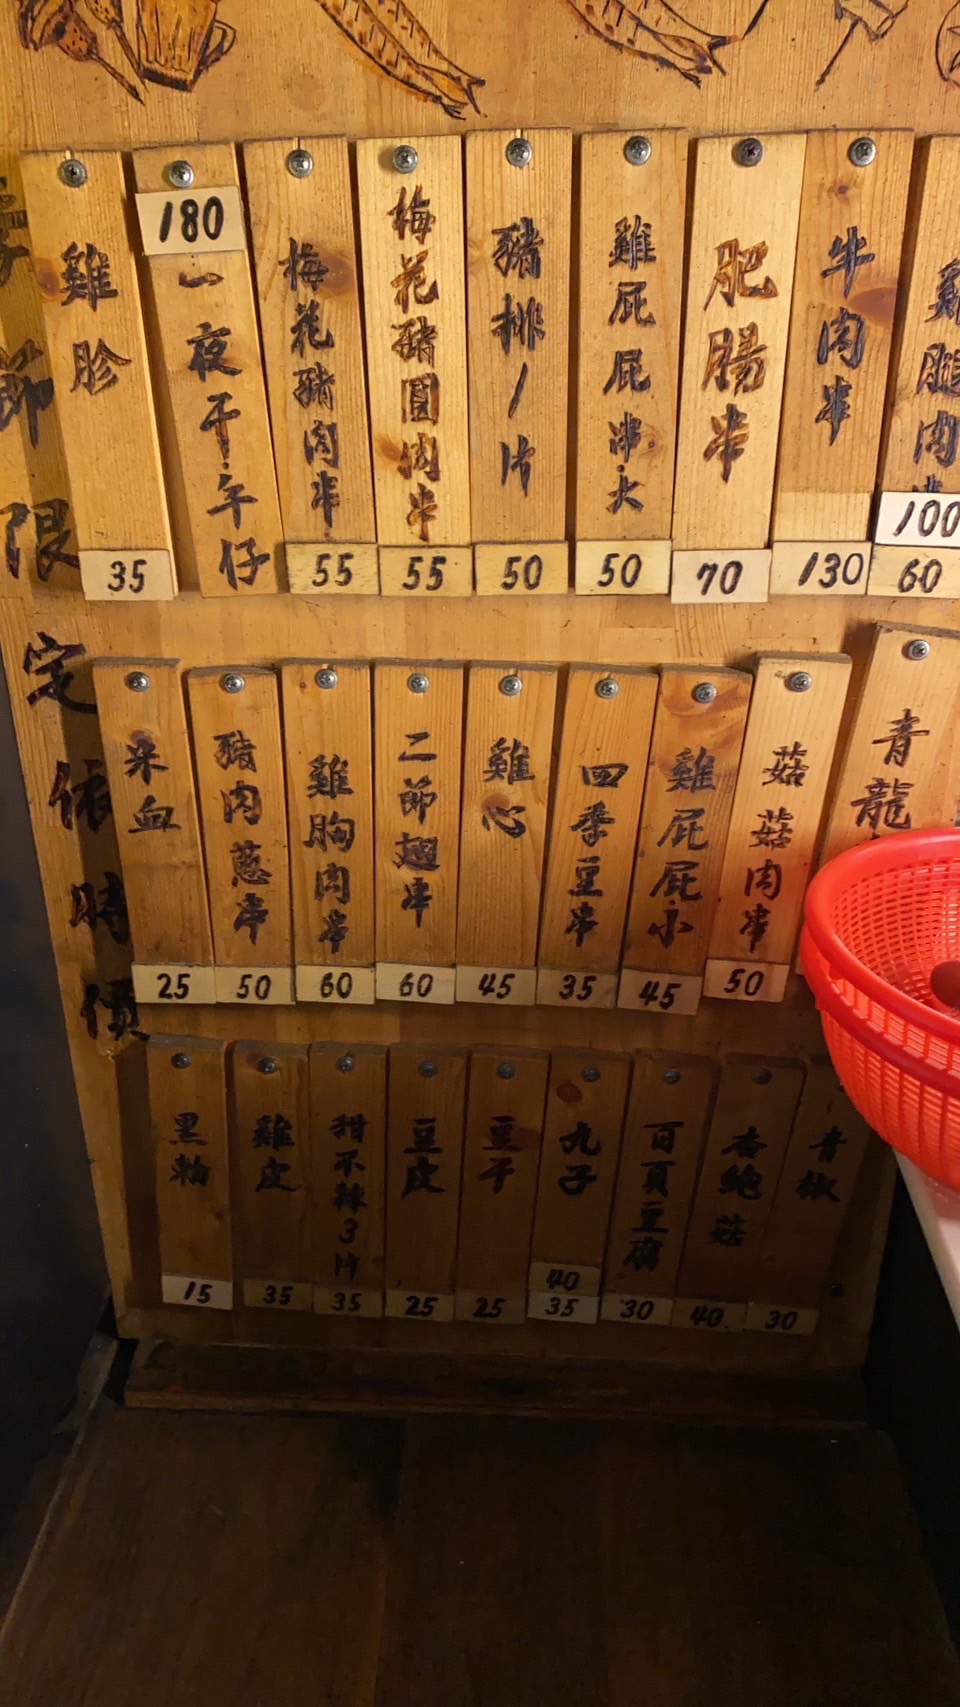 季節限定依時價
雞胗
35
180
一夜干.午仔
梅花豬肉串
55
梅花豬圓肉串
55
豬排/片
50
雞屁屁串.大
50
肥腸串
70
牛肉串
130
雞腿肉
100
60
米血
25
豬肉蔥串
50
雞胸肉串
60
二節翅串
60
雞心
45
四季豆串
35
雞屁屁.小
45
菇菇肉串
50
青龍
黑輪
15
雞皮
35
甜不辣3片
35
豆皮
25
豆干
25
丸子
40
35
百頁豆腐
30
杏鮑菇
40
青椒
30